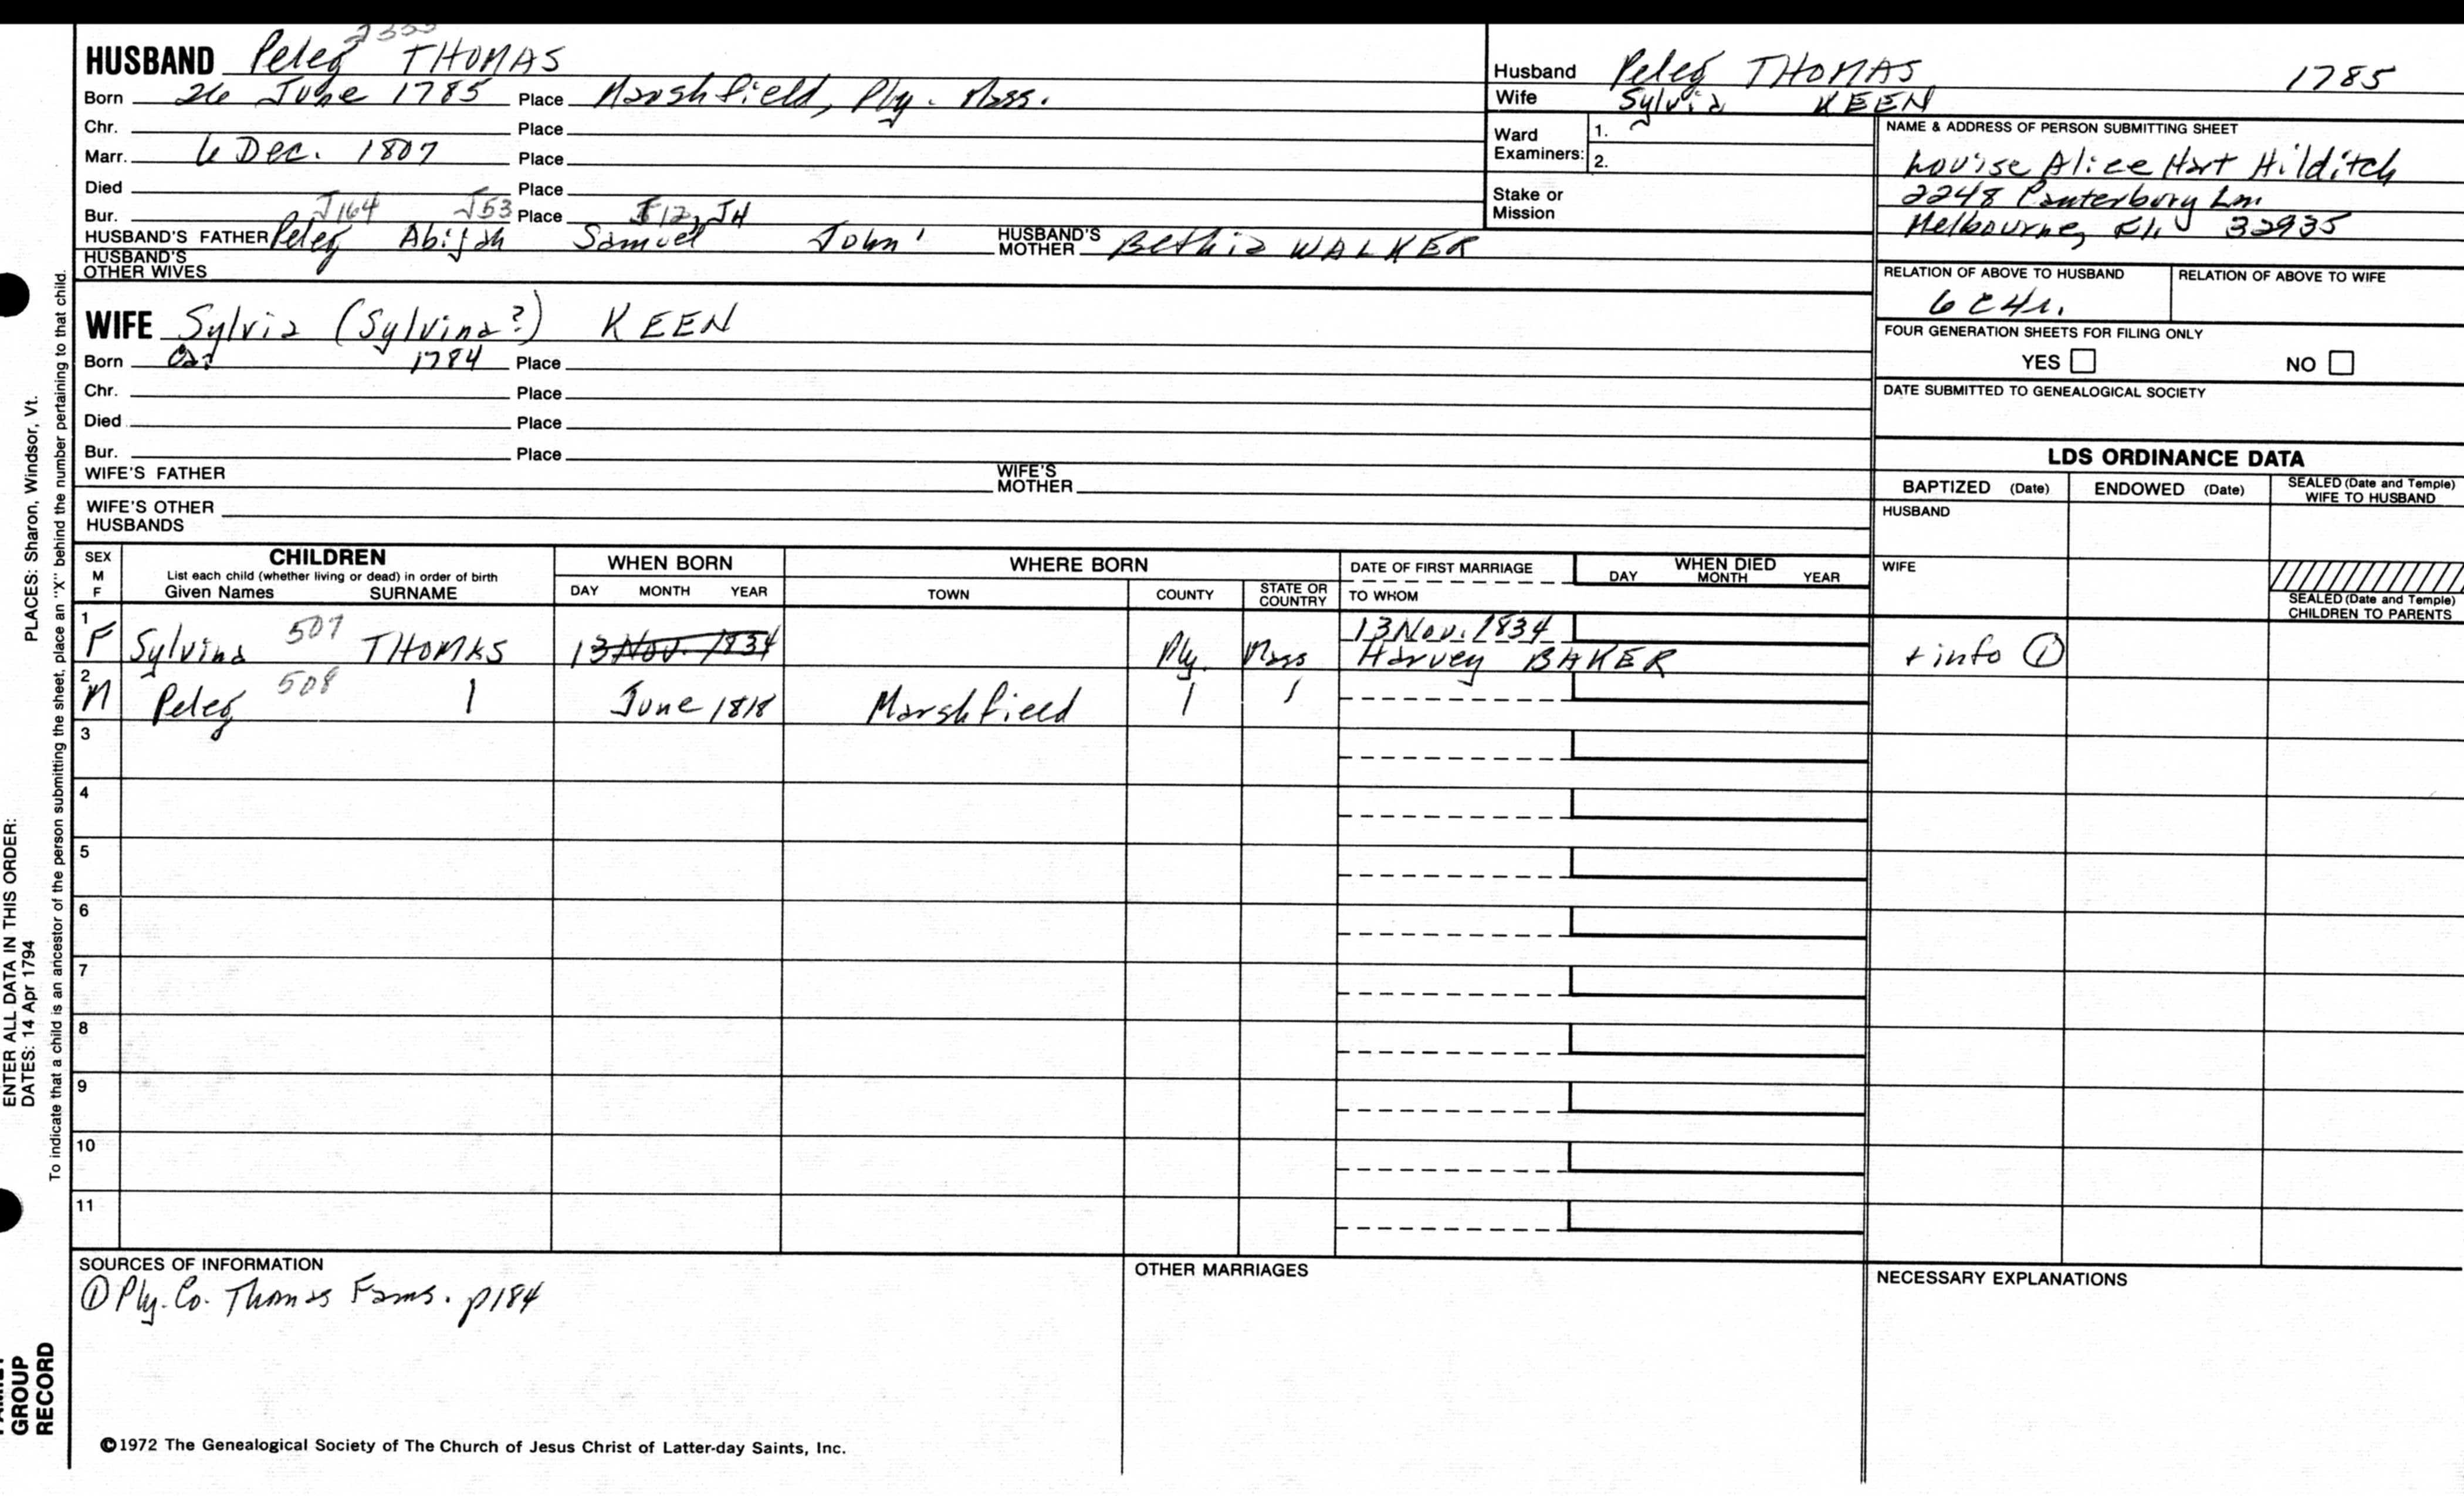 HUSBAND Peleg THOMAS
Born 26 June 1785 Place Marshfield, Ply. Mass.
Chr. Place
Marr. 6 Dec. 1807 Place
Died Place
Bur. J164 J53 Place J12, J4
HUSBAND'S FATHER Peleg Abijah Samuel John' HUSBAND'S MOTHER Bethia WALKER
HUSBAND'S OTHER WIVES
WIFE Sylvia (Sylvina?) KEEN
Born 1784 Place
Chr. Place
Died Place
Bur. Place
WIFE'S FATHER WIFE'S MOTHER
WIFE'S OTHER HUSBANDS
Husband Peleg THOMAS 1785
Wife Sylvia KEEN
Ward Examiners: 1.
2.
Stake or Mission
NAME & ADDRESS OF PERSON SUBMITTING SHEET
Louise Alice Hart Hilditch
2248 Canterbury Ln.
Melbourne, Fl. 32935
RELATION OF ABOVE TO HUSBAND RELATION OF ABOVE TO WIFE
6C4r.
FOUR GENERATION SHEETS FOR FILING ONLY
YES NO
DATE SUBMITTED TO GENEALOGICAL SOCIETY
LDS ORDINANCE DATA
BAPTIZED (Date) ENDOWED (Date) SEALED (Date and Temple) WIFE TO HUSBAND
HUSBAND
WIFE
SEALED (Date and Temple) CHILDREN TO PARENTS
SEX M F
CHILDREN
List each child (whether living or dead) in order of birth
Given Names SURNAME
WHEN BORN
DAY MONTH YEAR
WHERE BORN
TOWN COUNTY STATE OR COUNTRY
DATE OF FIRST MARRIAGE
TO WHOM
WHEN DIED
DAY MONTH YEAR
1 F Sylvina 507 THOMAS 13 Nov. 1834 Ply. Mass 13 Nov. 1834
Harvey BAKER + info ①
2 M Peleg 508 June 1818 Marshfield
3
4
5
6
7
8
9
10
11
SOURCES OF INFORMATION
① Ply. Co. Thomas Fams. p184
OTHER MARRIAGES
NECESSARY EXPLANATIONS
©1972 The Genealogical Society of The Church of Jesus Christ of Latter-day Saints, Inc.
ENTER ALL DATA IN THIS ORDER:
DATES: 14 Apr 1794 PLACES: Sharon, Windsor, Vt.
To indicate that a child is an ancestor of the person submitting the sheet, place an "X" behind the number pertaining to that child.
GROUP
RECORD